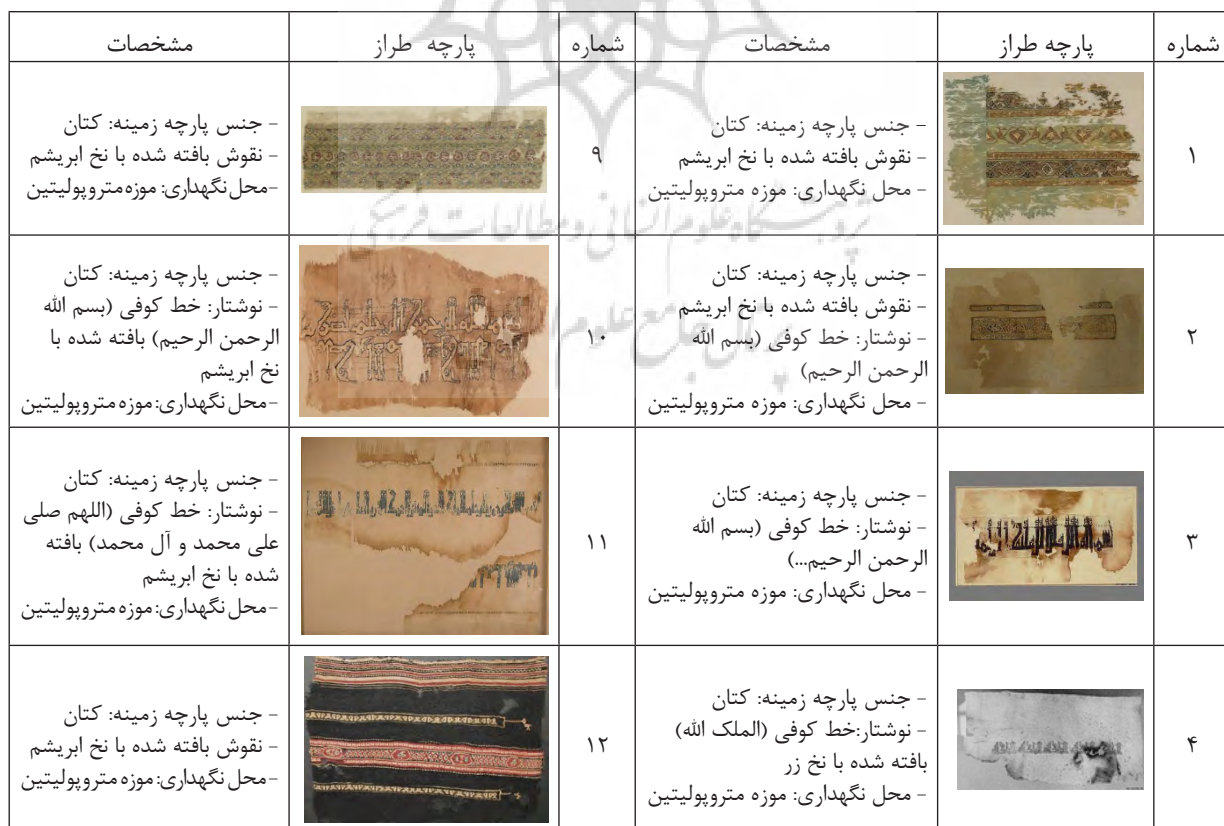 شماره
پارچه طراز
مشخصات
شماره
پارچه طراز
مشخصات
۱
- جنس پارچه زمینه: کتان
- نقوش بافته شده با نخ ابریشم
- محل نگهداری: موزه متروپولیتین
۹
- جنس پارچه زمینه: کتان
- نقوش بافته شده با نخ ابریشم
-محل نگهداری: موزه متروپولیتین
پژوهشگاه علوم انسانی و مطالعات فرهنگی
۲
- جنس پارچه زمینه: کتان
- نقوش بافته شده با نخ ابریشم
- نوشتار: خط کوفی (بسم الله
الرحمن الرحیم)
- محل نگهداری: موزه متروپولیتین
۱۰
- جنس پارچه زمینه: کتان
- نوشتار: خط کوفی (بسم الله
الرحمن الرحیم) بافته شده با
نخ ابریشم
-محل نگهداری: موزه متروپولیتین
پرتال جامع علوم ا
۳
- جنس پارچه زمینه: کتان
- نوشتار: خط کوفی (بسم الله
الرحمن الرحیم...)
- محل نگهداری: موزه متروپولیتین
۱۱
- جنس پارچه زمینه: کتان
- نوشتار: خط کوفی (اللهم صلی
علی محمد و آل محمد) بافته
شده با نخ ابریشم
-محل نگهداری: موزه متروپولیتین
۴
- جنس پارچه زمینه: کتان
- نوشتار:خط کوفی (الملک الله)
بافته شده با نخ زر
- محل نگهداری: موزه متروپولیتین
۱۲
- جنس پارچه زمینه: کتان
- نقوش بافته شده با نخ ابریشم
-محل نگهداری: موزه متروپولیتین